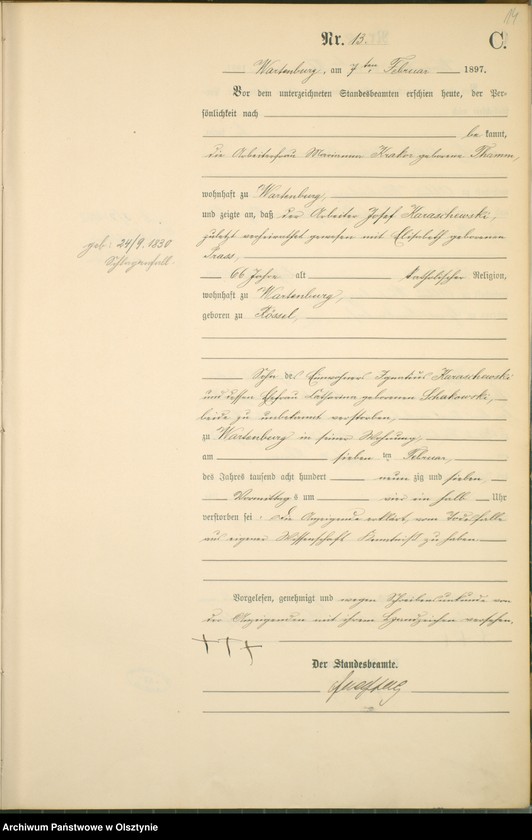 114
Nr. 13. C.
Wartenburg, am 7ten Februar 1897.
Vor dem unterzeichneten Standesbeamten erschien heute, der Per-
sönlichkeit nach
be kannt,
die Arbeiterfrau Marianna Krakor geborene Thamm,
wohnhaft zu Wartenburg,
und zeigte an, daß der Arbeiter Josef Karaschewski,
zuletzt verheirathet gewesen mit Elisabeth geborenen
Prass,
geb: 24/9. 1830
Schlaganfall.
66 Jahre alt katholischer Religion,
wohnhaft zu Wartenburg,
geboren zu Rössel,
Sohn des Einwohners Ignatius Karaschewski
und dessen Ehefrau Catharina geborenen
beide zu unbekannt verstorben,
zu Wartenburg in seiner Wohnung,
am sieben ten Februar,
des Jahres tausend acht hundert neun zig und sieben
Vormittags um vier ein halb Uhr
verstorben sei. Die Anzeigende erklärt, vom Todesfalle
aus eigener Wissenschaft Kenntniß zu haben.
Vorgelesen, genehmigt und wegen Schreibensunkunde von
der Anzeigenden mit ihrem Handzeichen versehen.
+++
Der Standesbeamte.
Archiwum Państwowe w Olsztynie